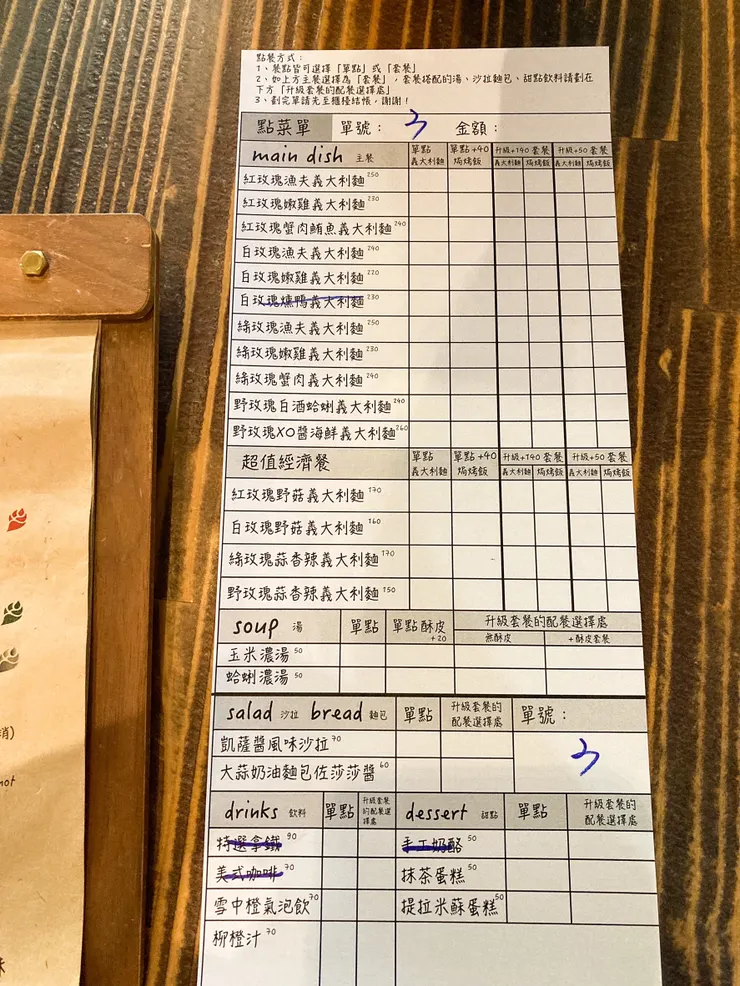 點餐方式：
1、餐點皆可選擇「單點」或「套餐」
2、如上方主餐選擇為「套餐」，套餐搭配的湯、沙拉麵包、甜點飲料請劃在
下方「升級套餐的配餐選擇處」
3、劃完單請先至櫃檯結帳，謝謝！
點菜單 單號： 3 金額：
main dish 主餐 單點 義大利麵 單點+40 焗烤飯 升級+190 套餐 義大利麵 焗烤飯 升級+50 套餐 義大利麵 焗烤飯
紅玫瑰漁夫義大利麵 250
紅玫瑰嫩雞義大利麵 230
紅玫瑰蟹肉鮪魚義大利麵 240
白玫瑰漁夫義大利麵 240
白玫瑰嫩雞義大利麵 220
白玫瑰燻鴨義大利麵 230
綠玫瑰漁夫義大利麵 250
綠玫瑰嫩雞義大利麵 230
綠玫瑰蟹肉義大利麵 240
野玫瑰白酒蛤蜊義大利麵 240
野玫瑰XO醬海鮮義大利麵 260
超值經濟餐 單點 義大利麵 單點+40 焗烤飯 升級+190 套餐 義大利麵 焗烤飯 升級+50 套餐 義大利麵 焗烤飯
紅玫瑰野菇義大利麵 170
白玫瑰野菇義大利麵 160
綠玫瑰蒜香辣義大利麵 170
野玫瑰蒜香辣義大利麵 150
soup 湯 單點 單點酥皮 +20 升級套餐的配餐選擇處 無酥皮 +酥皮套餐
玉米濃湯 50
蛤蜊濃湯 50
salad 沙拉 bread 麵包 單點 升級套餐的配餐選擇處 單號：
凱薩醬風味沙拉 70
3
大蒜奶油麵包佐莎莎醬 60
drinks 飲料 單點 升級套餐的配餐選擇處 dessert 甜點 單點 升級套餐的配餐選擇處
特選拿鐵 90 手工奶酪 50
美式咖啡 70 抹茶蛋糕 50
雪中橙氣泡飲 70 提拉米蘇蛋糕 50
柳橙汁 70